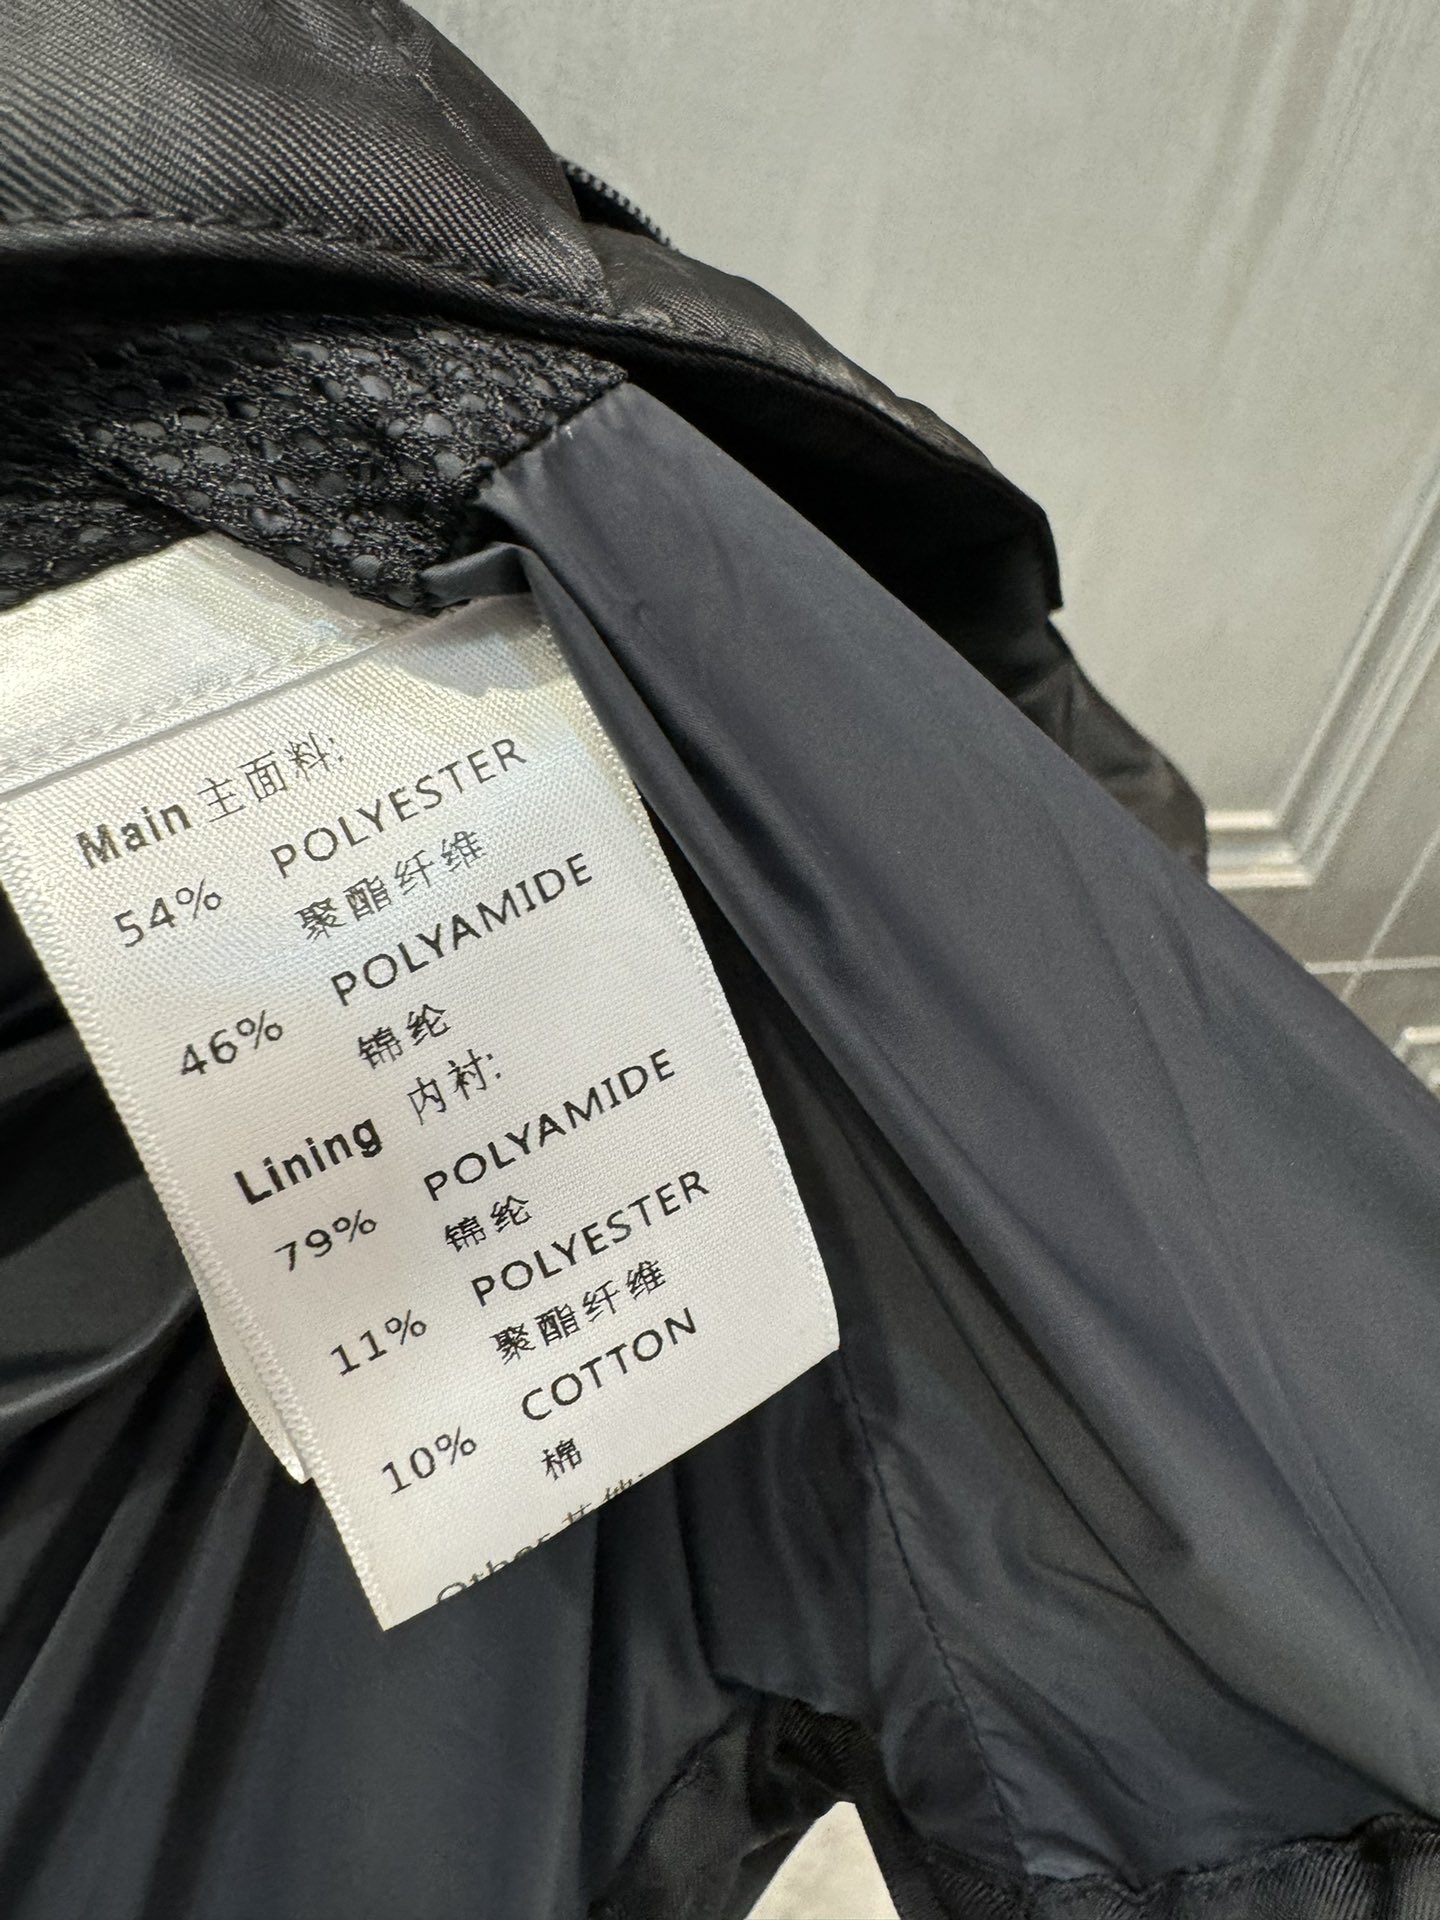 Main 主面料:
54% POLYESTER
聚酯纤维
46% POLYAMIDE
锦纶
Lining 内衬:
79% POLYAMIDE
锦纶
11% POLYESTER
聚酯纤维
10% COTTON
棉
Other 其他: